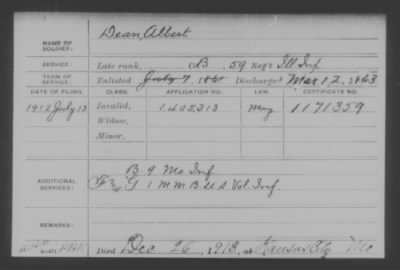 NAME OF SOLDIER: Dean, Albert
SERVICE: Late rank, Co B, 59 Reg't Ill Inf
TERM OF SERVICE: Enlisted July 7, 1861 Discharged Mar 12, 1863
DATE OF FILING. CLASS. APPLICATION NO. LAW. CERTIFICATE NO.
1912 July 13 Invalid, 1402313 may 1171359
Widow,
Minor,
ADDITIONAL SERVICES: B 9 Mo Inf
F & G 1 M M B. U.S. Vol. Inf.
REMARKS:
Died Dec 26, 1918, at Kansas City Mo